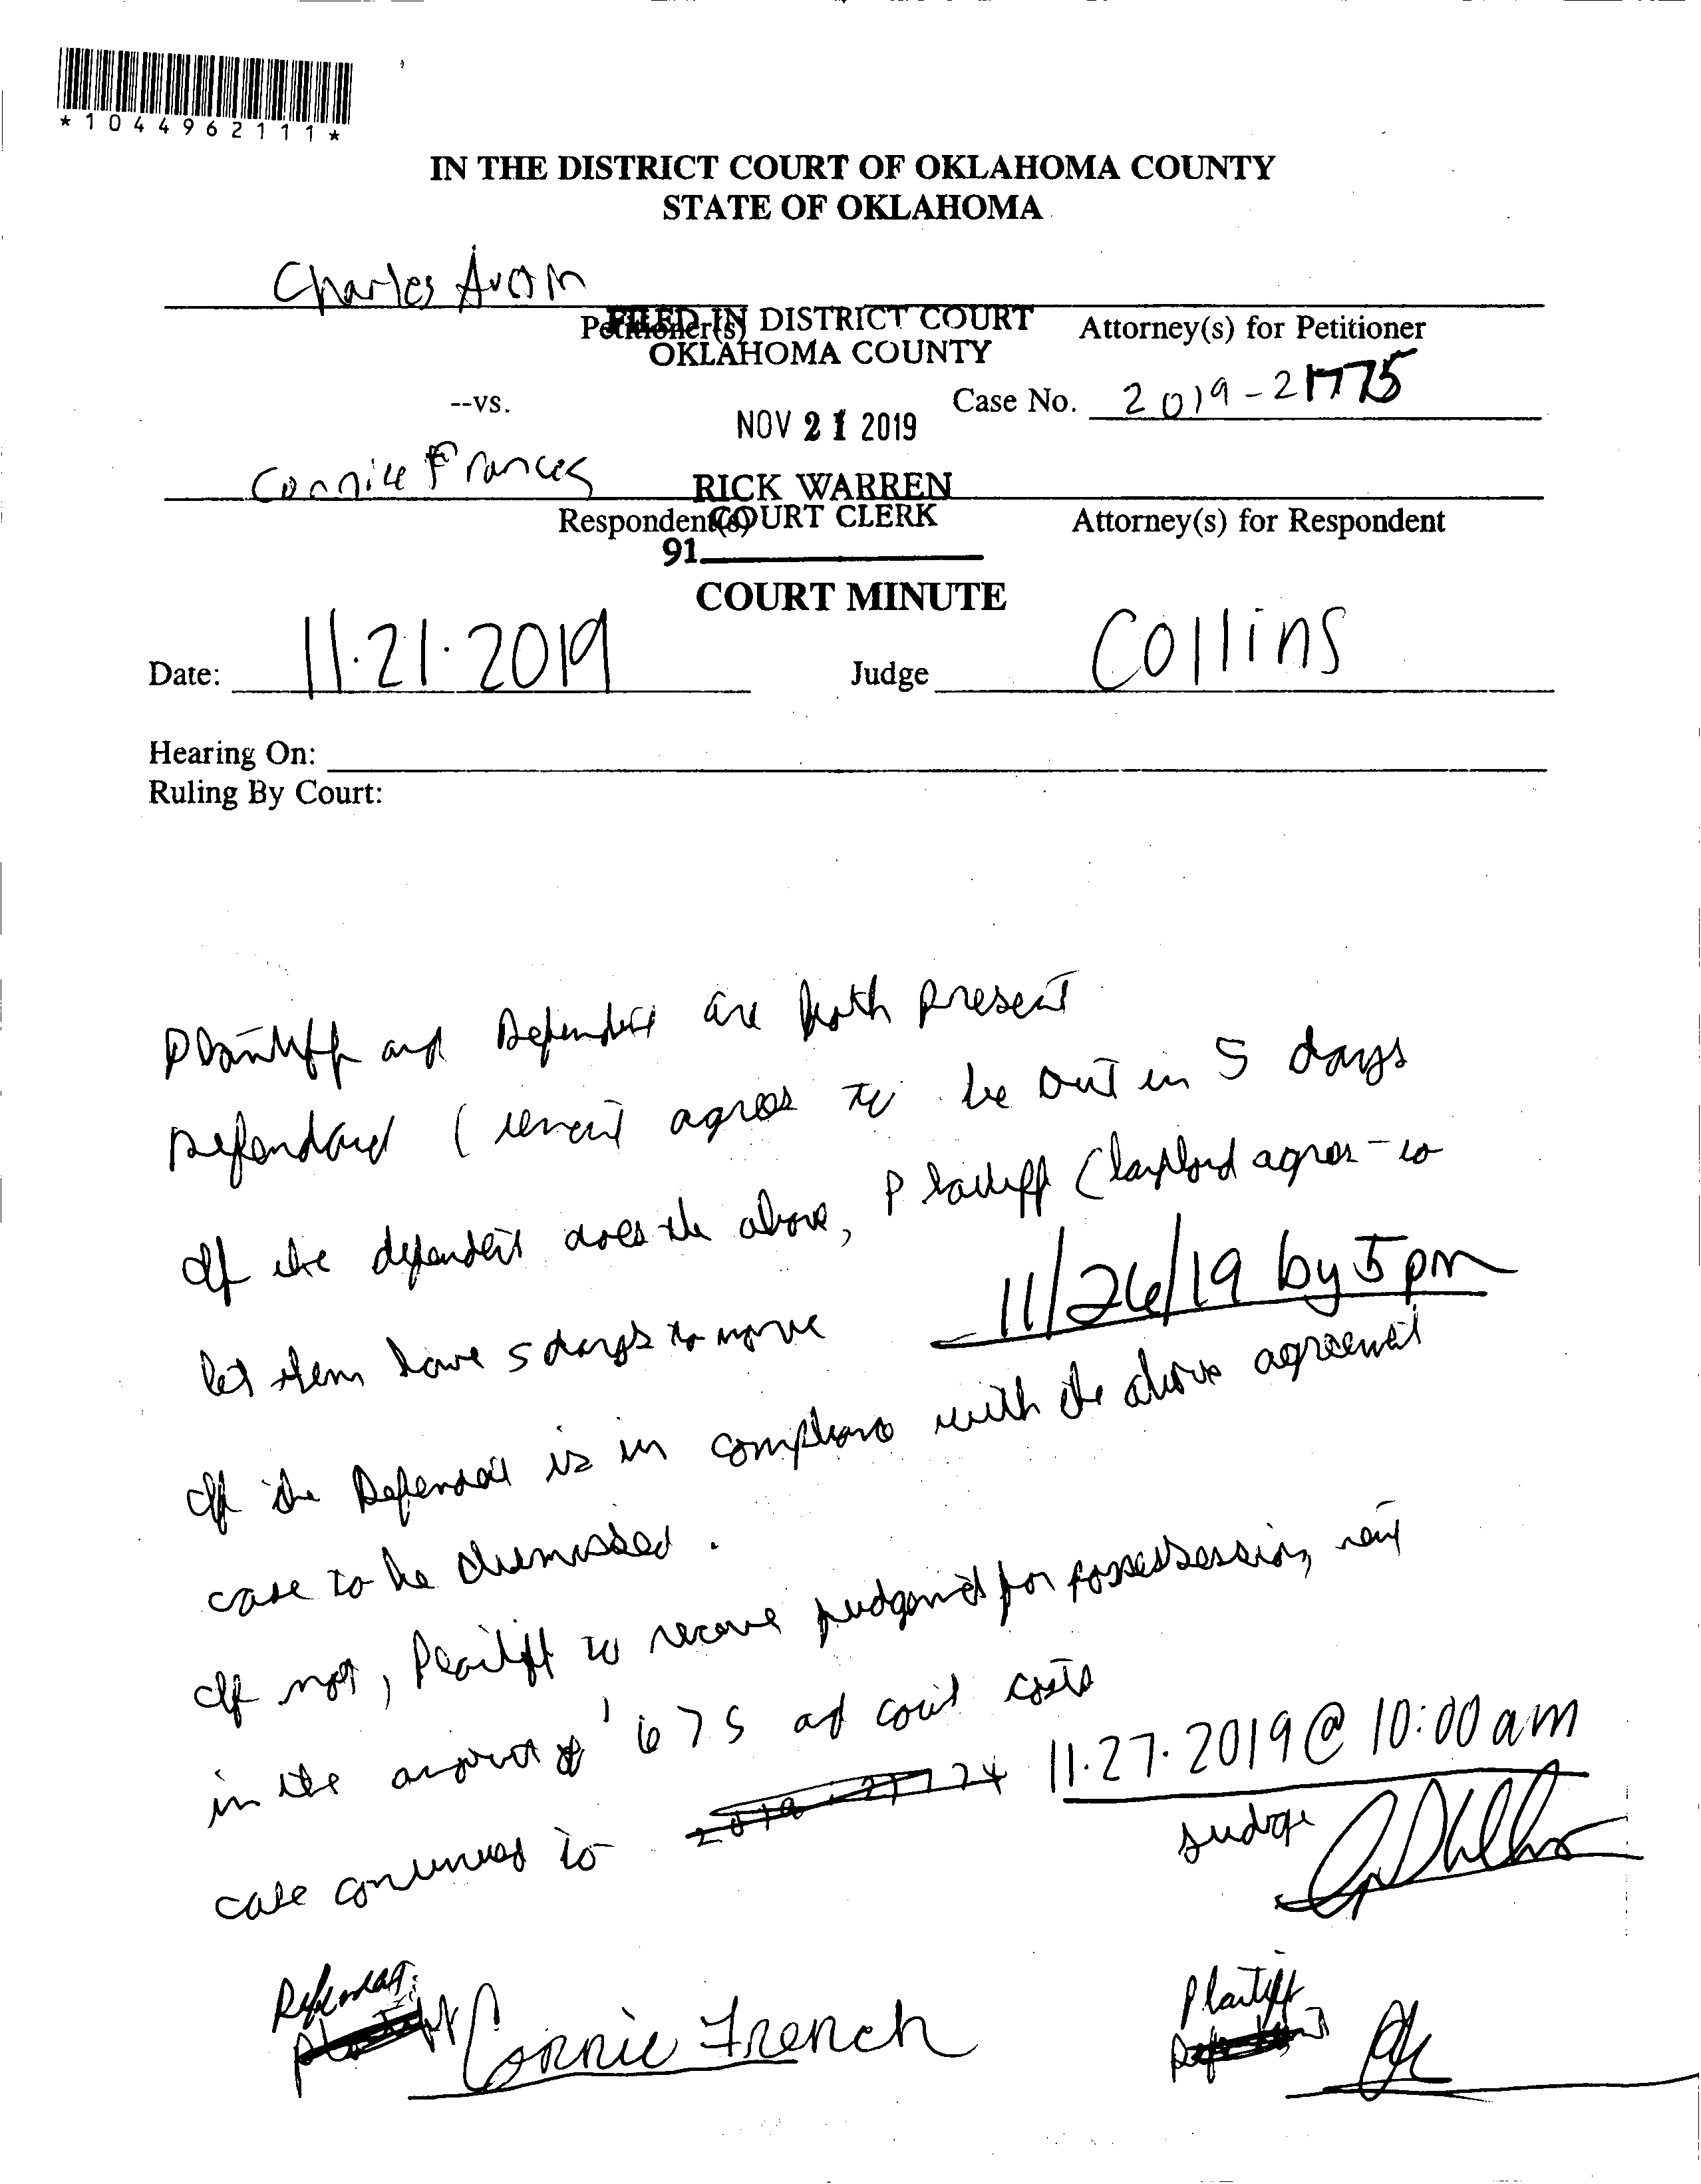 *1044962111*
IN THE DISTRICT COURT OF OKLAHOMA COUNTY
STATE OF OKLAHOMA
Charles
Petitioner(s)
Attorney(s) for Petitioner
FILED IN DISTRICT COURT
OKLAHOMA COUNTY
--vs.
Case No. 2019-21775
NOV 21 2019
Connie Frances
RICK WARREN
Respondent(s)
COURT CLERK
Attorney(s) for Respondent
91
COURT MINUTE
Date: 11.21.2019
Judge Collins
Hearing On:
Ruling By Court:
Plaintiff and Defendant are both present
Defendant (tenant agrees to be out in 5 days
If the defendant does the above, Plaintiff (landlord agrees to
let them have 5 days to move 11/26/19 by 5pm
If the Defendant is in compliance with the above agreement
case to be dismissed.
If not, Plaintiff to receive judgment for possession, rent
in the amount of 675 and court costs
case continued to 11.27.2019 @ 10:00 am
Judge
Defendant:
Connie French
Plaintiff